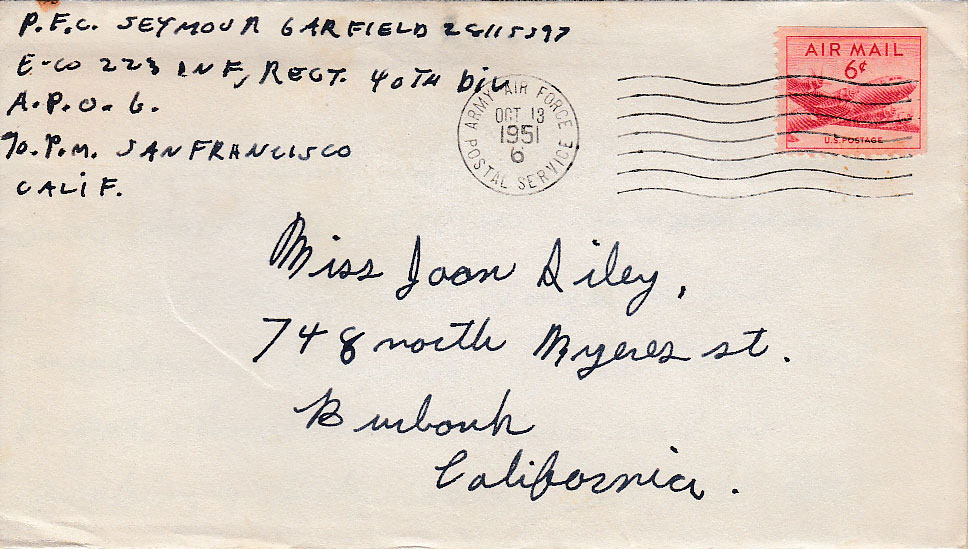 P.F.C. SEYMOUR GARFIELD 28115397
E-CO 223 INF, REGT. 40TH DIV
A.P.O. 6.
%O.P.M. SAN FRANCISCO
CALIF.
ARMY-AIR FORCE
OCT 13
1951
6
POSTAL SERVICE
AIR MAIL
6¢
U.S. POSTAGE
Miss Joan Diley,
748 north Myeres st.
Burbank
California.